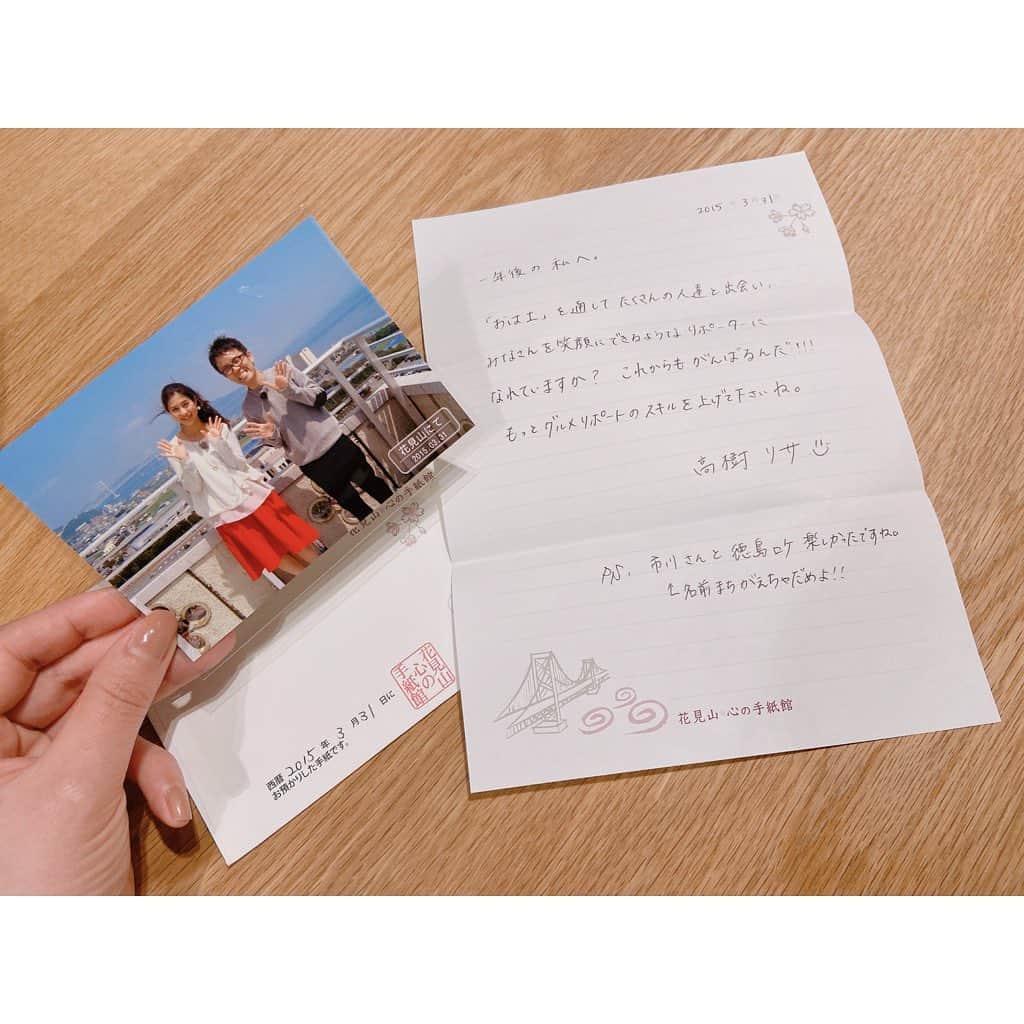 花見山にて
2015.03.31
花見山 心の手紙館
花見山
心の
手紙館
西暦 2015 年 3 月 31 日に
お預かりした手紙です。
2015 3 31
一年後の 私へ。
「おは土」を通して たくさんの人達と出会い、
みなさんを笑顔にできるようなリポーターに
なれていますか? これからも がんばるんだ!!!
もっとグルメリポートのスキルを上げて下さいね。
高樹 リサ
P.S. 市川さんと 徳島ロケ 楽しかったですね。
↑名前まちがえちゃだめよ!!
花見山 心の手紙館